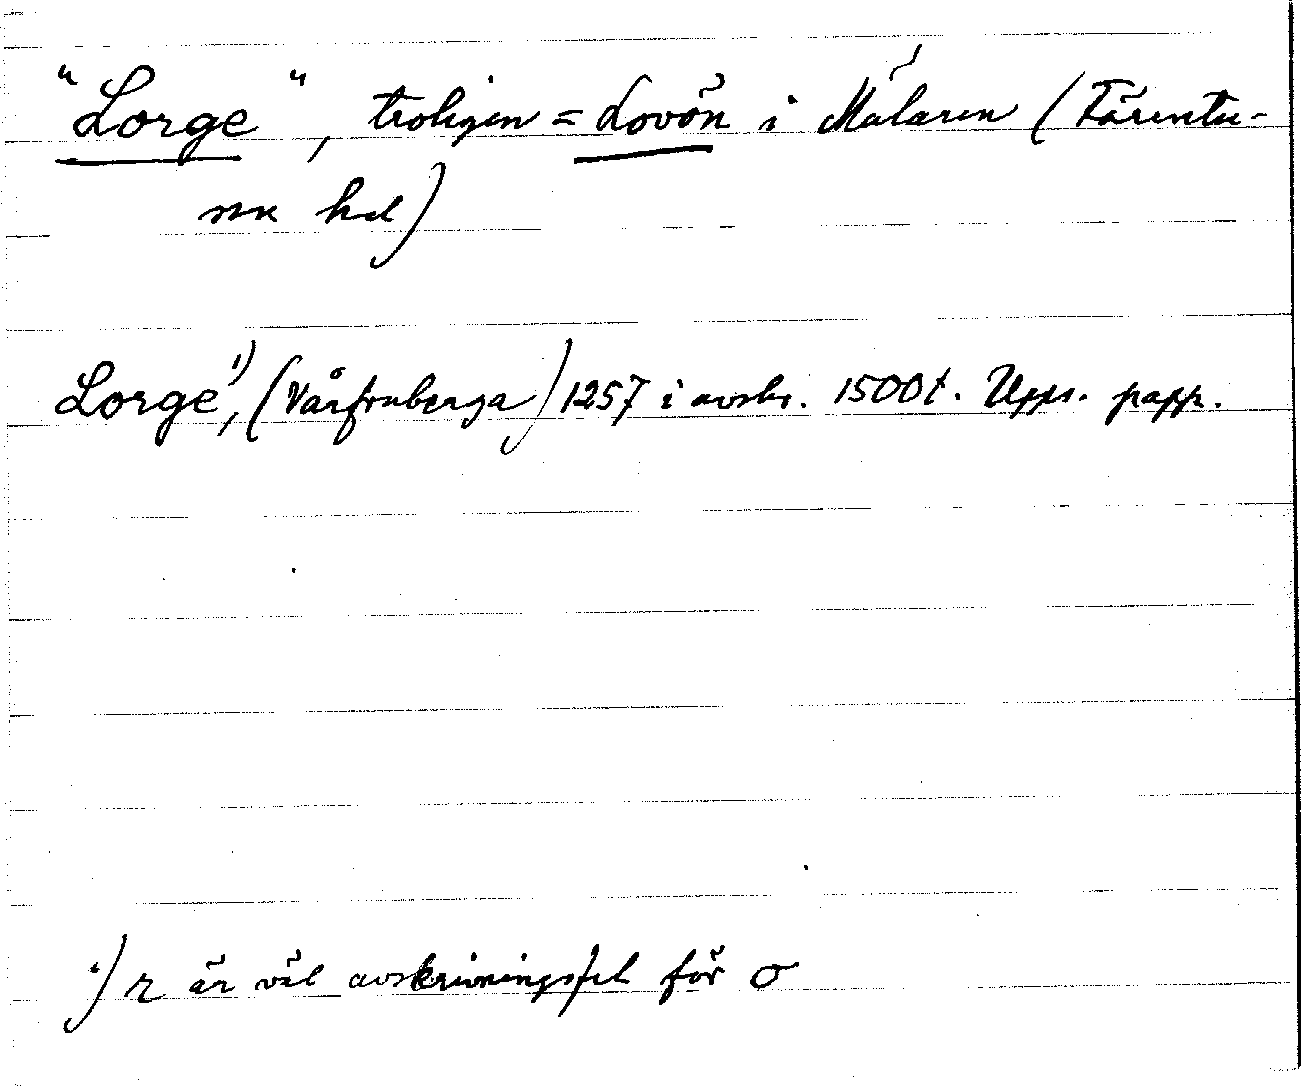 "Lorge", troligen = Lovön i Mälaren (Färentu-
na hd)
Lorge¹⁾, (Vårfruberga) 1257 i avskr. 1500t. Upps. papp.
¹⁾ r är väl avskrivningsfel för σ